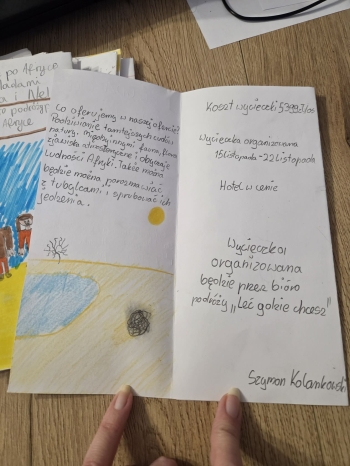 po Afryce
ladami
a i Nel!
podróży
Afryce
Co oferujemy w naszej ofercie?
Podziwianie tamtejszych cudów
natury. Między innymi: fauna, flora
zjawiska atmosferyczne i obyczaje
ludności Afryki. Także można
będzie można porozmawiać
z tubylcami, i spróbować ich
jedzenia.
Koszt wycieczki 5399zł/os
Wycieczka organizowana
15listopada-22listopada
Hotel w cenie
Wycieczka
organizowana
będzie przez biuro
podróży „Leć gdzie chcesz"
Szymon Kolankowski